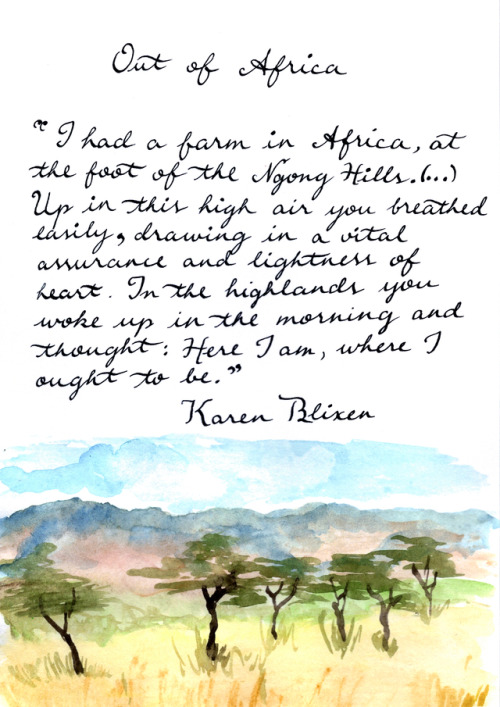 Out of Africa
"I had a farm in Africa, at
the foot of the Ngong Hills.(...)
Up in this high air you breathed
easily, drawing in a vital
assurance and lightness of
heart. In the highlands you
woke up in the morning and
thought: Here I am, where I
ought to be."
Karen Blixen